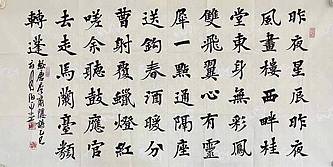 昨夜星辰昨夜
風畫樓西畔桂
堂東身無彩鳳
雙飛翼心有靈
犀一點通隔座
送鈎春酒暖分
曹射覆蠟燈紅
嗟余聽鼓應官
去走馬蘭臺類
轉蓬
唐李商隱詩